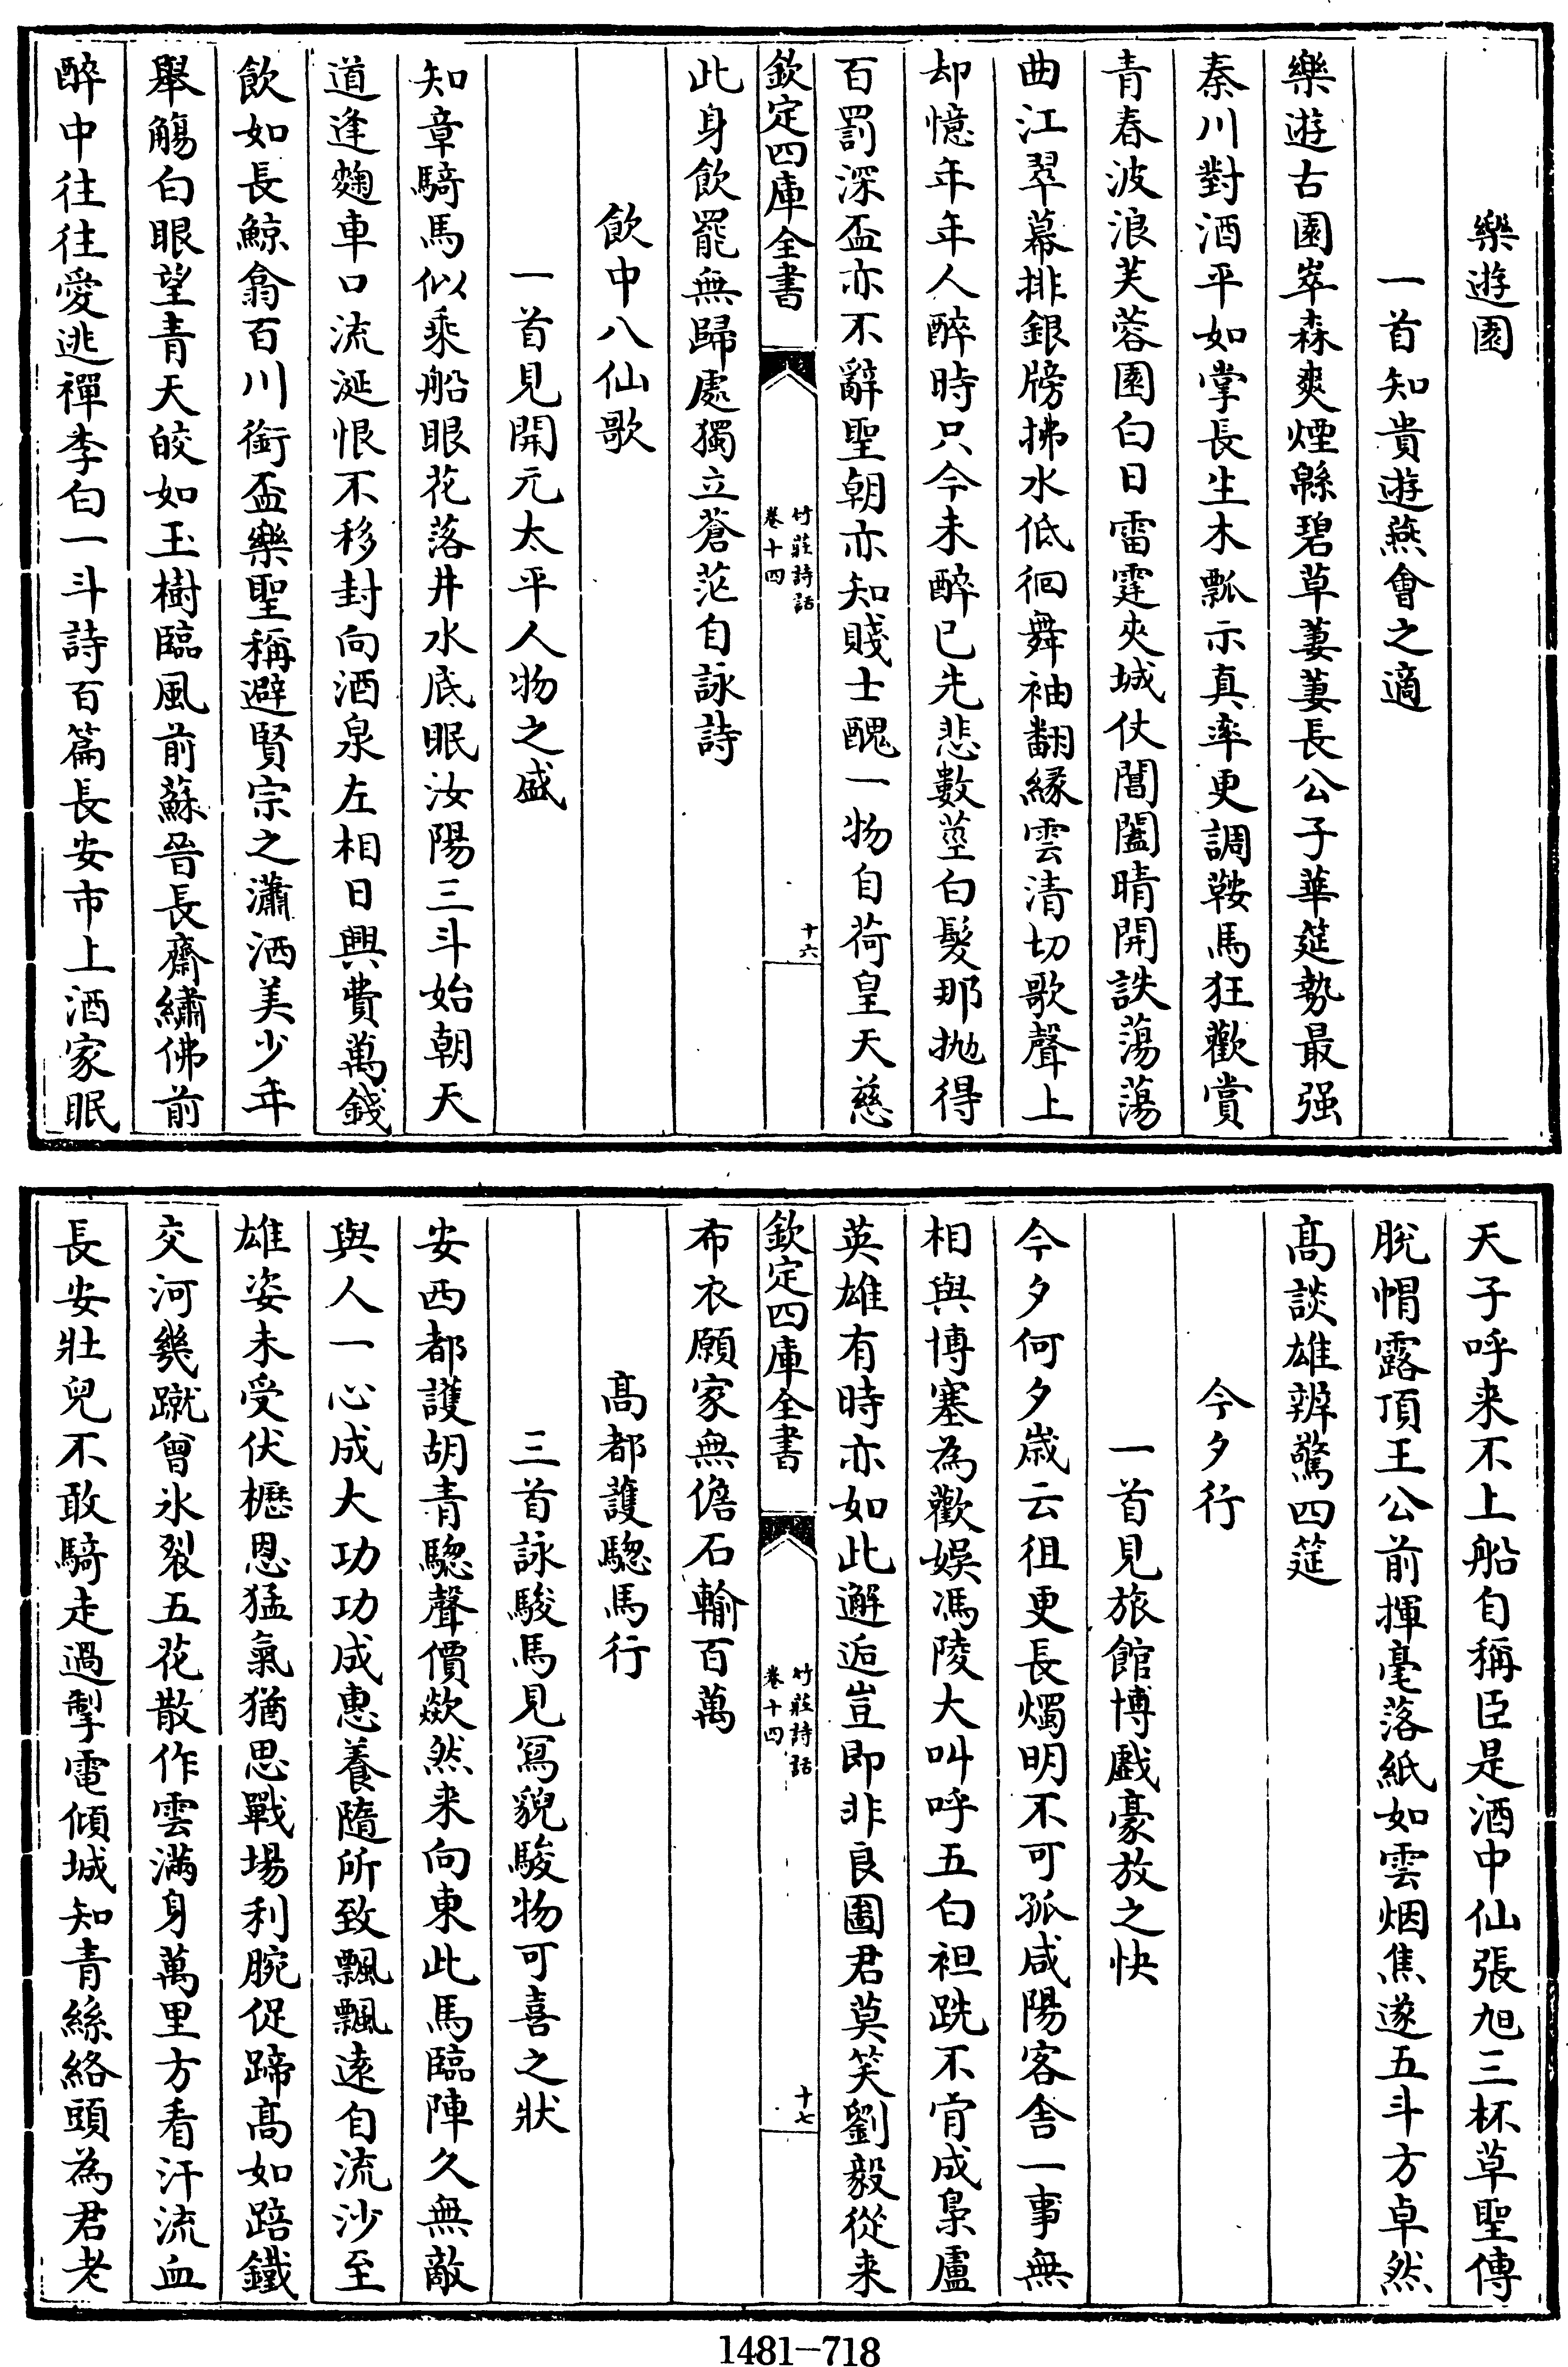 樂遊園
一首知貴遊燕會之適
樂遊古園崒森爽煙緜碧草萋萋長公子華筵勢最强
秦川對酒平如掌長生木瓢示真率更調鞍馬狂歡賞
青春波浪芙蓉園白日雷霆夾城仗閶闔晴開詄蕩蕩
曲江翠幕排銀牓拂水低徊舞袖翻縁雲清切歌聲上
却憶年年人醉時只今未醉已先悲數莖白髮那抛得
百罰深盃亦不辭聖朝亦知賤士醜一物自荷皇天慈
欽定四庫全書
竹莊詩話
卷十四
十六
此身飲罷無歸處獨立蒼茫自詠詩
飲中八仙歌
一首見開元太平人物之盛
知章騎馬似乘船眼花落井水底眠汝陽三斗始朝天
道逢麴車口流涎恨不移封向酒泉左相日興費萬錢
飲如長鯨翕百川銜盃樂聖稱避賢宗之瀟洒美少年
舉觴白眼望青天皎如玉樹臨風前蘇晉長齋繡佛前
醉中往往愛逃禪李白一斗詩百篇長安市上酒家眠
天子呼来不上船自稱臣是酒中仙張旭三杯草聖傳
脫帽露頂王公前揮毫落紙如雲烟焦遂五斗方卓然
髙談雄辨驚四筵
今夕行
一首見旅館博戲豪放之快
今夕何夕歳云徂更長燭明不可孤咸陽客舍一事無
相與博塞為歡娱馮陵大叫呼五白袒跣不肯成梟盧
英雄有時亦如此邂逅豈即非良圖君莫笑劉毅從来
欽定四庫全書
竹莊詩話
卷十四
十七
布衣願家無儋石輸百萬
髙都護驄馬行
三首詠駿馬見冩貌駿物可喜之狀
安西都護胡青驄聲價歘然来向東此馬臨陣久無敵
與人一心成大功功成惠養隨所致飄飄逺自流沙至
雄姿未受伏櫪恩猛氣猶思戰場利腕促蹄髙如踣鐵
交河幾蹴曾氷裂五花散作雲滿身萬里方看汗流血
長安壯兒不敢騎走過掣電傾城知青絲絡頭為君老
1481-718